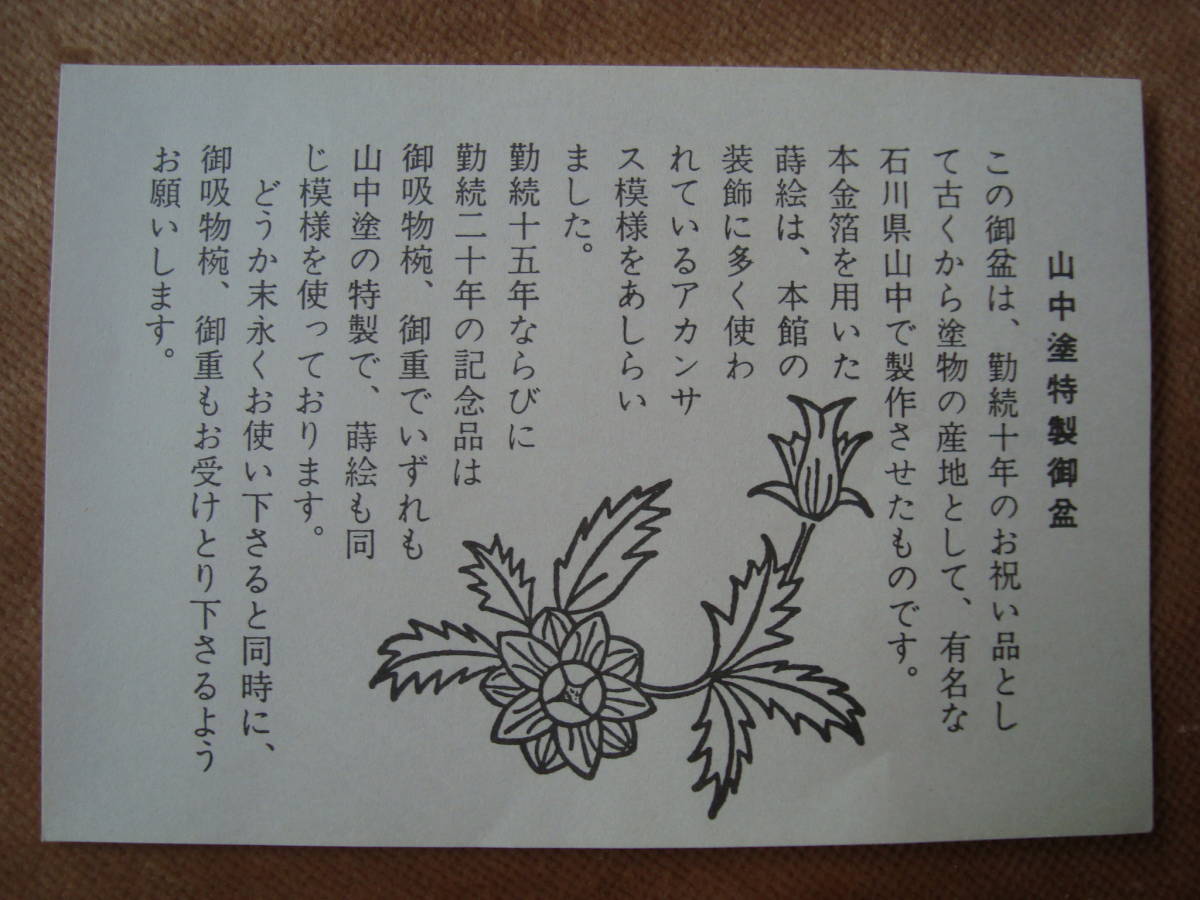 山中塗特製御盆
この御盆は、勤続十年のお祝い品とし
て古くから塗物の産地として、有名な
石川県山中で製作させたものです。
本金箔を用いた
蒔絵は、本館の
装飾に多く使わ
れているアカンサ
ス模様をあしらい
ました。
勤続十五年ならびに
勤続二十年の記念品は
御吸物椀、御重でいずれも
山中塗の特製で、蒔絵も同
じ模様を使っております。
どうか末永くお使い下さると同時に、
御吸物椀、御重もお受けとり下さるよう
お願いします。